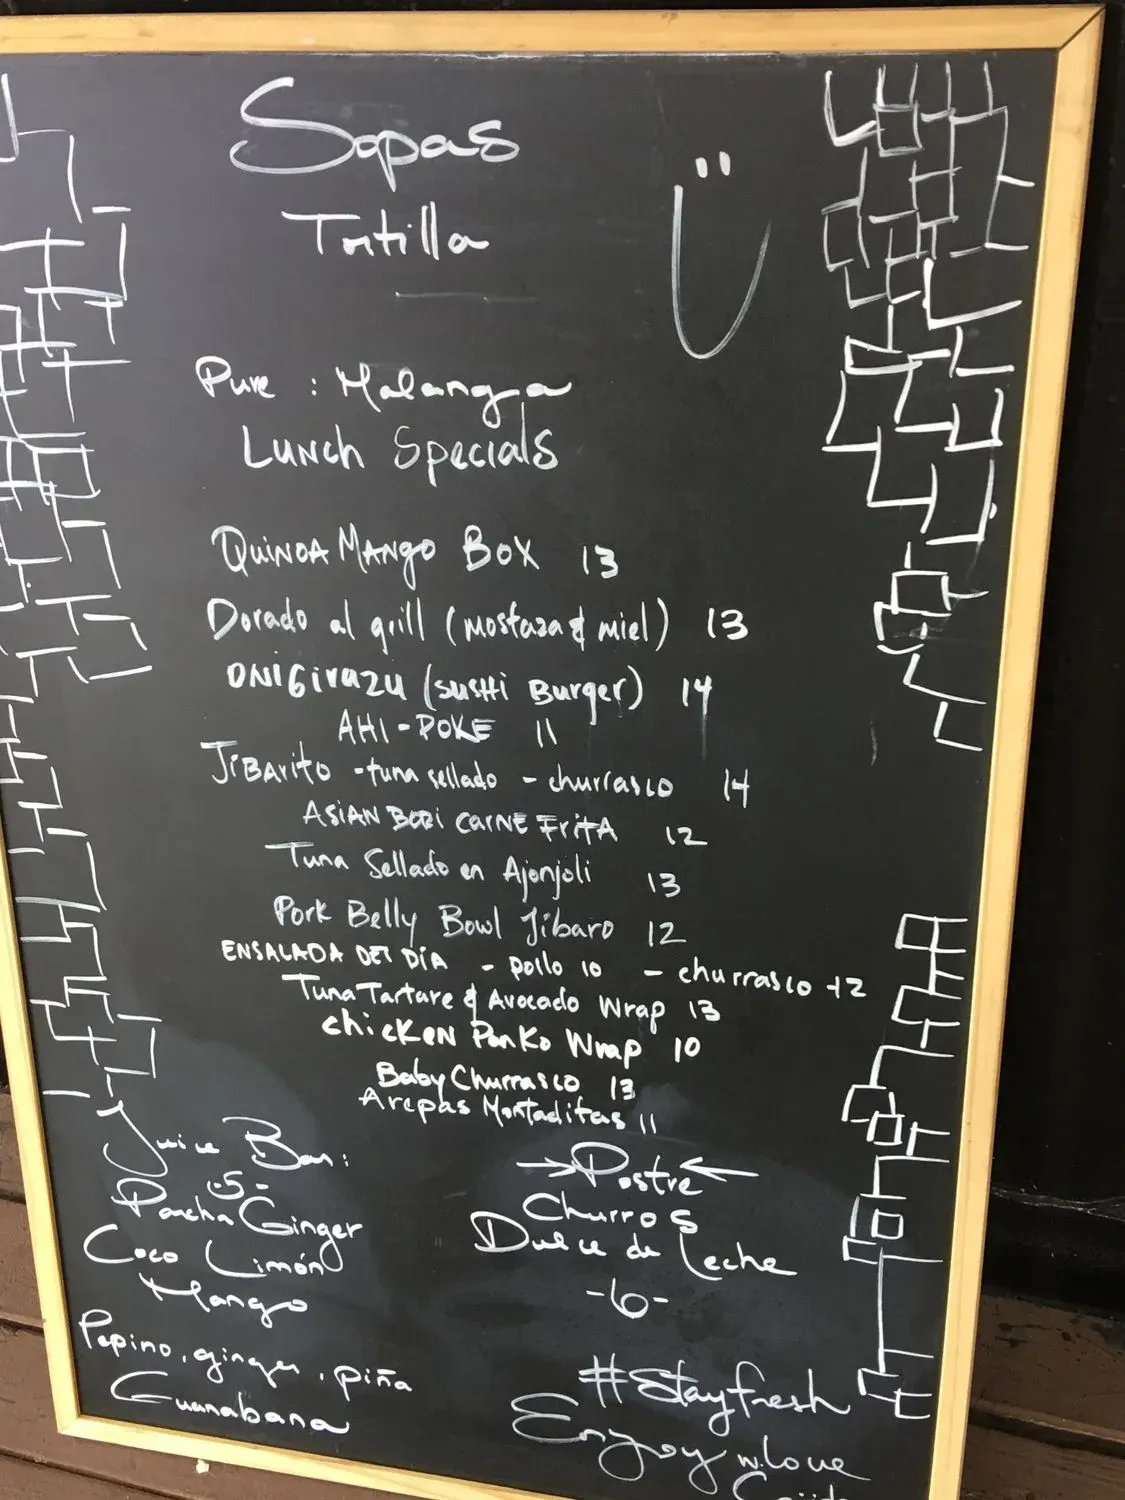 Sopas
Tortilla
Pure : Malanga
Lunch Specials
Quinoa Mango Box 13
Dorado al grill (mostaza & miel) 13
ONIGIRAZU (SUSHI Burger) 14
AHI-POKE 11
JiBarito - tuna sellado - churrasco 14
ASIAN BORI CARNE FRITA 12
Tuna Sellado en Ajonjoli 13
Pork Belly Bowl Jibaro 12
ENSALADA DEL DÍA - pollo 10 - churrasco 12
Tuna Tartare & Avocado Wrap 13
chicken Panko Wrap 10
Baby Churrasco 13
Arepas Montaditas 11
Juice Bar:
-5-
Parcha Ginger
Coco Limón
Mango
Pepino, ginger, piña
Guanabana
→ Postre ←
Churros
Dulce de Leche
-6-
#Stayfresh
Enjoy w. Love